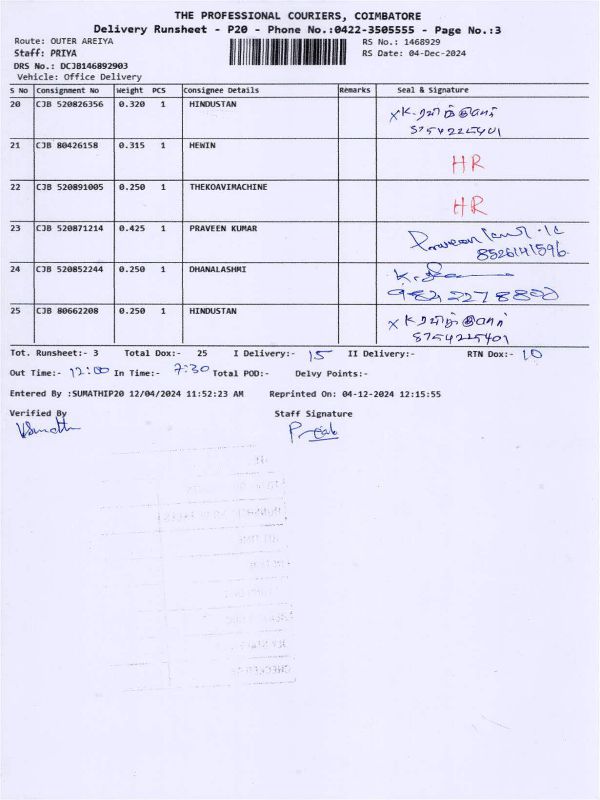 THE PROFESSIONAL COURIERS, COIMBATORE
Delivery Runsheet - P20 - Phone No.:0422-3505555 - Page No.:3
Route: OUTER AREIYA RS No.: 1468929
Staff: PRIYA RS Date: 04-Dec-2024
DRS No.: DCJB146892903
Vehicle: Office Delivery
S No Consignment No Weight PCS Consignee Details Remarks Seal & Signature
20 CJB 520826356 0.320 1 HINDUSTAN
8754225401
21 CJB 80426158 0.315 1 HEWIN HR
22 CJB 520891005 0.250 1 THEKOAVIMACHINE HR
23 CJB 520871214 0.425 1 PRAVEEN KUMAR
8526141596
24 CJB 520852244 0.250 1 DHANALASHMI
25 CJB 80662208 0.250 1 HINDUSTAN
8754225401
Tot. Runsheet:- 3 Total Dox:- 25 I Delivery:- 15 II Delivery:- RTN Dox:- 10
Out Time:- 12:00 In Time:- 7:30 Total POD:- Delvy Points:-
Entered By :SUMATHIP20 12/04/2024 11:52:23 AM Reprinted On: 04-12-2024 12:15:55
Verified By Staff Signature